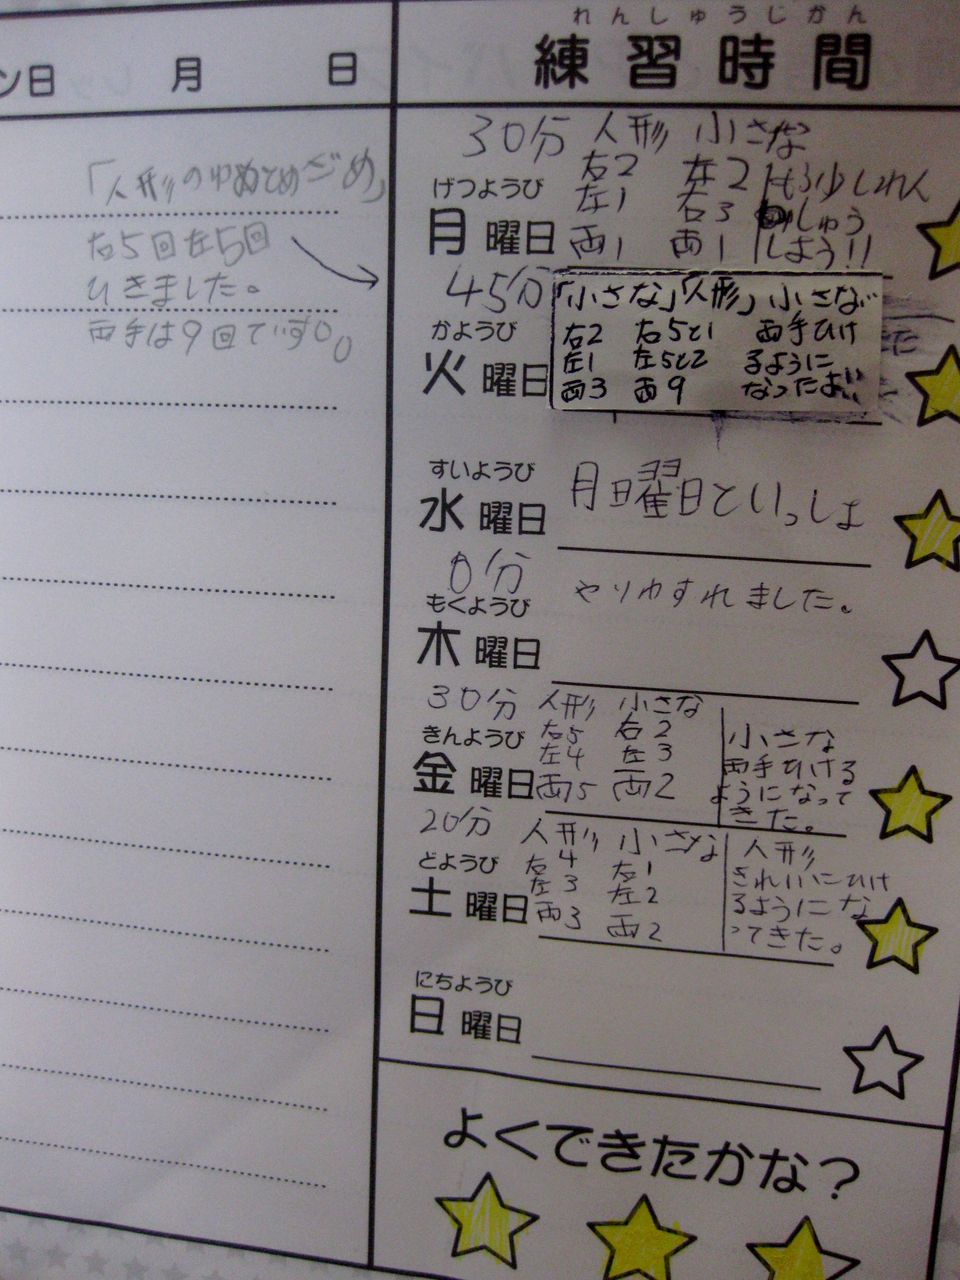 ン日 月 日
「人形のゆめとめざめ」
右5回左5回
ひきました。
両手は9回ですOO
れんしゅうじかん
練習時間
30分 人形 小さな
右2 左2 もう少しれん
左1 右3 しゅう
両1 両1 しよう!!
げつようび
月曜日
45分
「小さな」「人形」小さな
右2 右5と1 両手ひけ
左1 左5と2 るように
両3 両9 なったよ
かようび
火曜日
すいようび
水曜日
月曜日といっしょ
0分
もくようび
木曜日
やりわすれました。
30分 人形 小さな
右5 右2 小さな
左4 左3 両手ひける
両5 両2 ようになって
きた。
きんようび
金曜日
20分 人形 小さな 人形
右4 右1 きれいにひけ
左3 左2 るようにな
両3 両2 ってきた。
どようび
土曜日
にちようび
日曜日
よくできたかな?